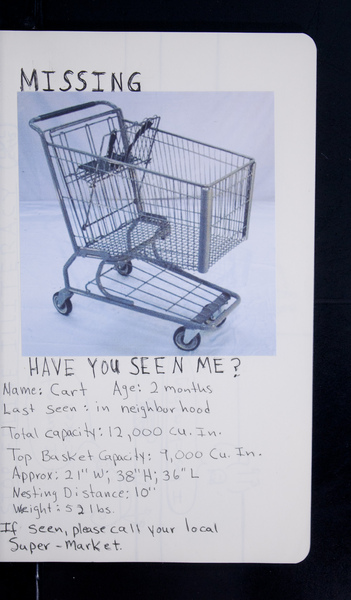 MISSING
HAVE YOU SEEN ME?
Name: Cart Age: 2 months
Last seen: in neighborhood
Total capacity: 12,000 Cu. In.
Top Basket Capacity: 9,000 Cu. In.
Approx: 21" W; 38" H; 36" L
Nesting Distance: 10"
Weight: 52 lbs.
If seen, please call your local
Super-Market.